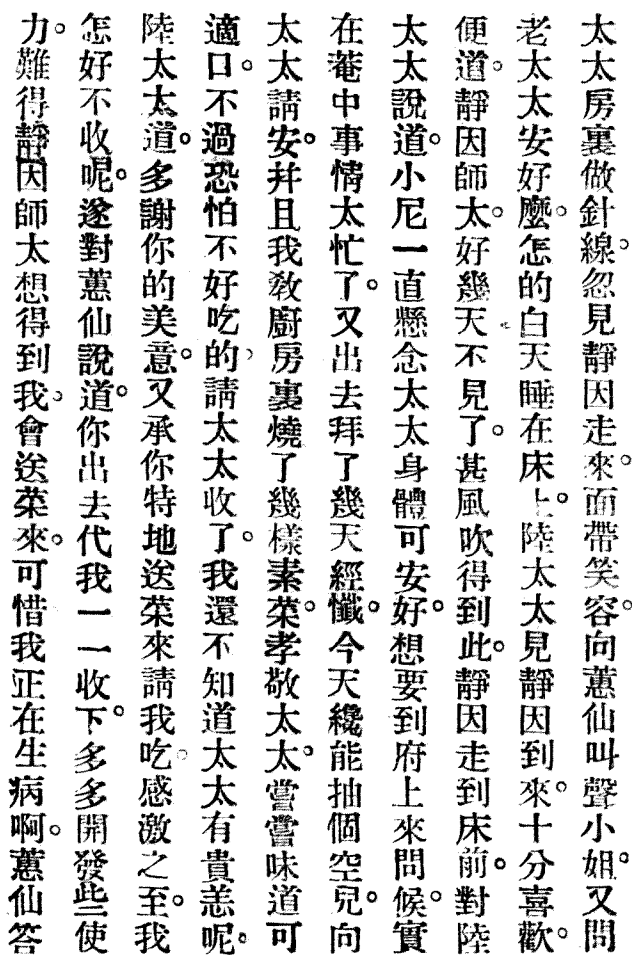 太太房裏做針線。忽見靜因走來。面帶笑容。向蕙仙叫聲小姐。又問
老太太安好麼。怎的白天睡在床上。陸太太見靜因到來。十分喜歡。
便道。靜因師太。好幾天不見了。甚風吹得到此。靜因走到床前。對陸
太太說道。小尼一直懸念太太身體可安好。想要到府上來問候。實
在菴中事情太忙了。又出去拜了幾天經懺。今天纔能抽個空兒。向
太太請安。幷且我敎廚房裏燒了幾樣素菜。孝敬太太。嘗嘗味道可
適口。不過恐怕不好吃的。請太太收了。我還不知道太太有貴恙呢。
陸太太道。多謝你的美意。又承你特地送菜來請我吃。感激之至。我
怎好不收呢。遂對蕙仙說道。你出去代我一一收下。多多開發些使
力。難得靜因師太想得到我。會送菜來。可惜我正在生病啊。蕙仙答